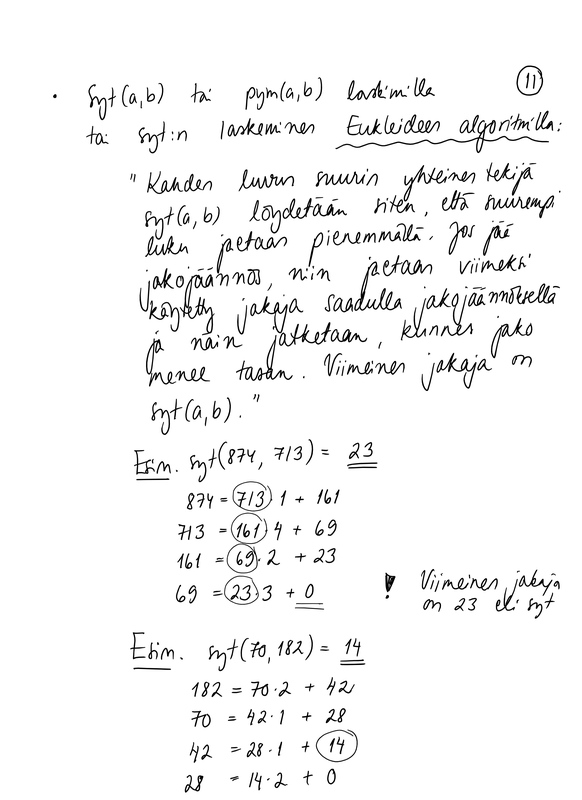 11
• syt(a,b) tai pym(a,b) laskimilla
tai syt:n laskeminen Eukleideen algoritmilla:
" Kahden luvun suurin yhteinen tekijä
syt(a,b) löydetään siten, että suurempi
luku jaetaan pienemmällä. Jos jää
jakojäännös, niin jaetaan viimeksi
käytetty jakaja saadulla jakojäännöksellä
ja näin jatketaan, kunnes jako
menee tasan. Viimeinen jakaja on
syt(a,b). "
Esim. syt(874, 713) = 23
874 = 713·1 + 161
713 = 161·4 + 69
161 = 69·2 + 23
69 = 23·3 + 0
! Viimeinen jakaja
on 23 eli syt
Esim. syt(70, 182) = 14
182 = 70·2 + 42
70 = 42·1 + 28
42 = 28·1 + 14
28 = 14·2 + 0